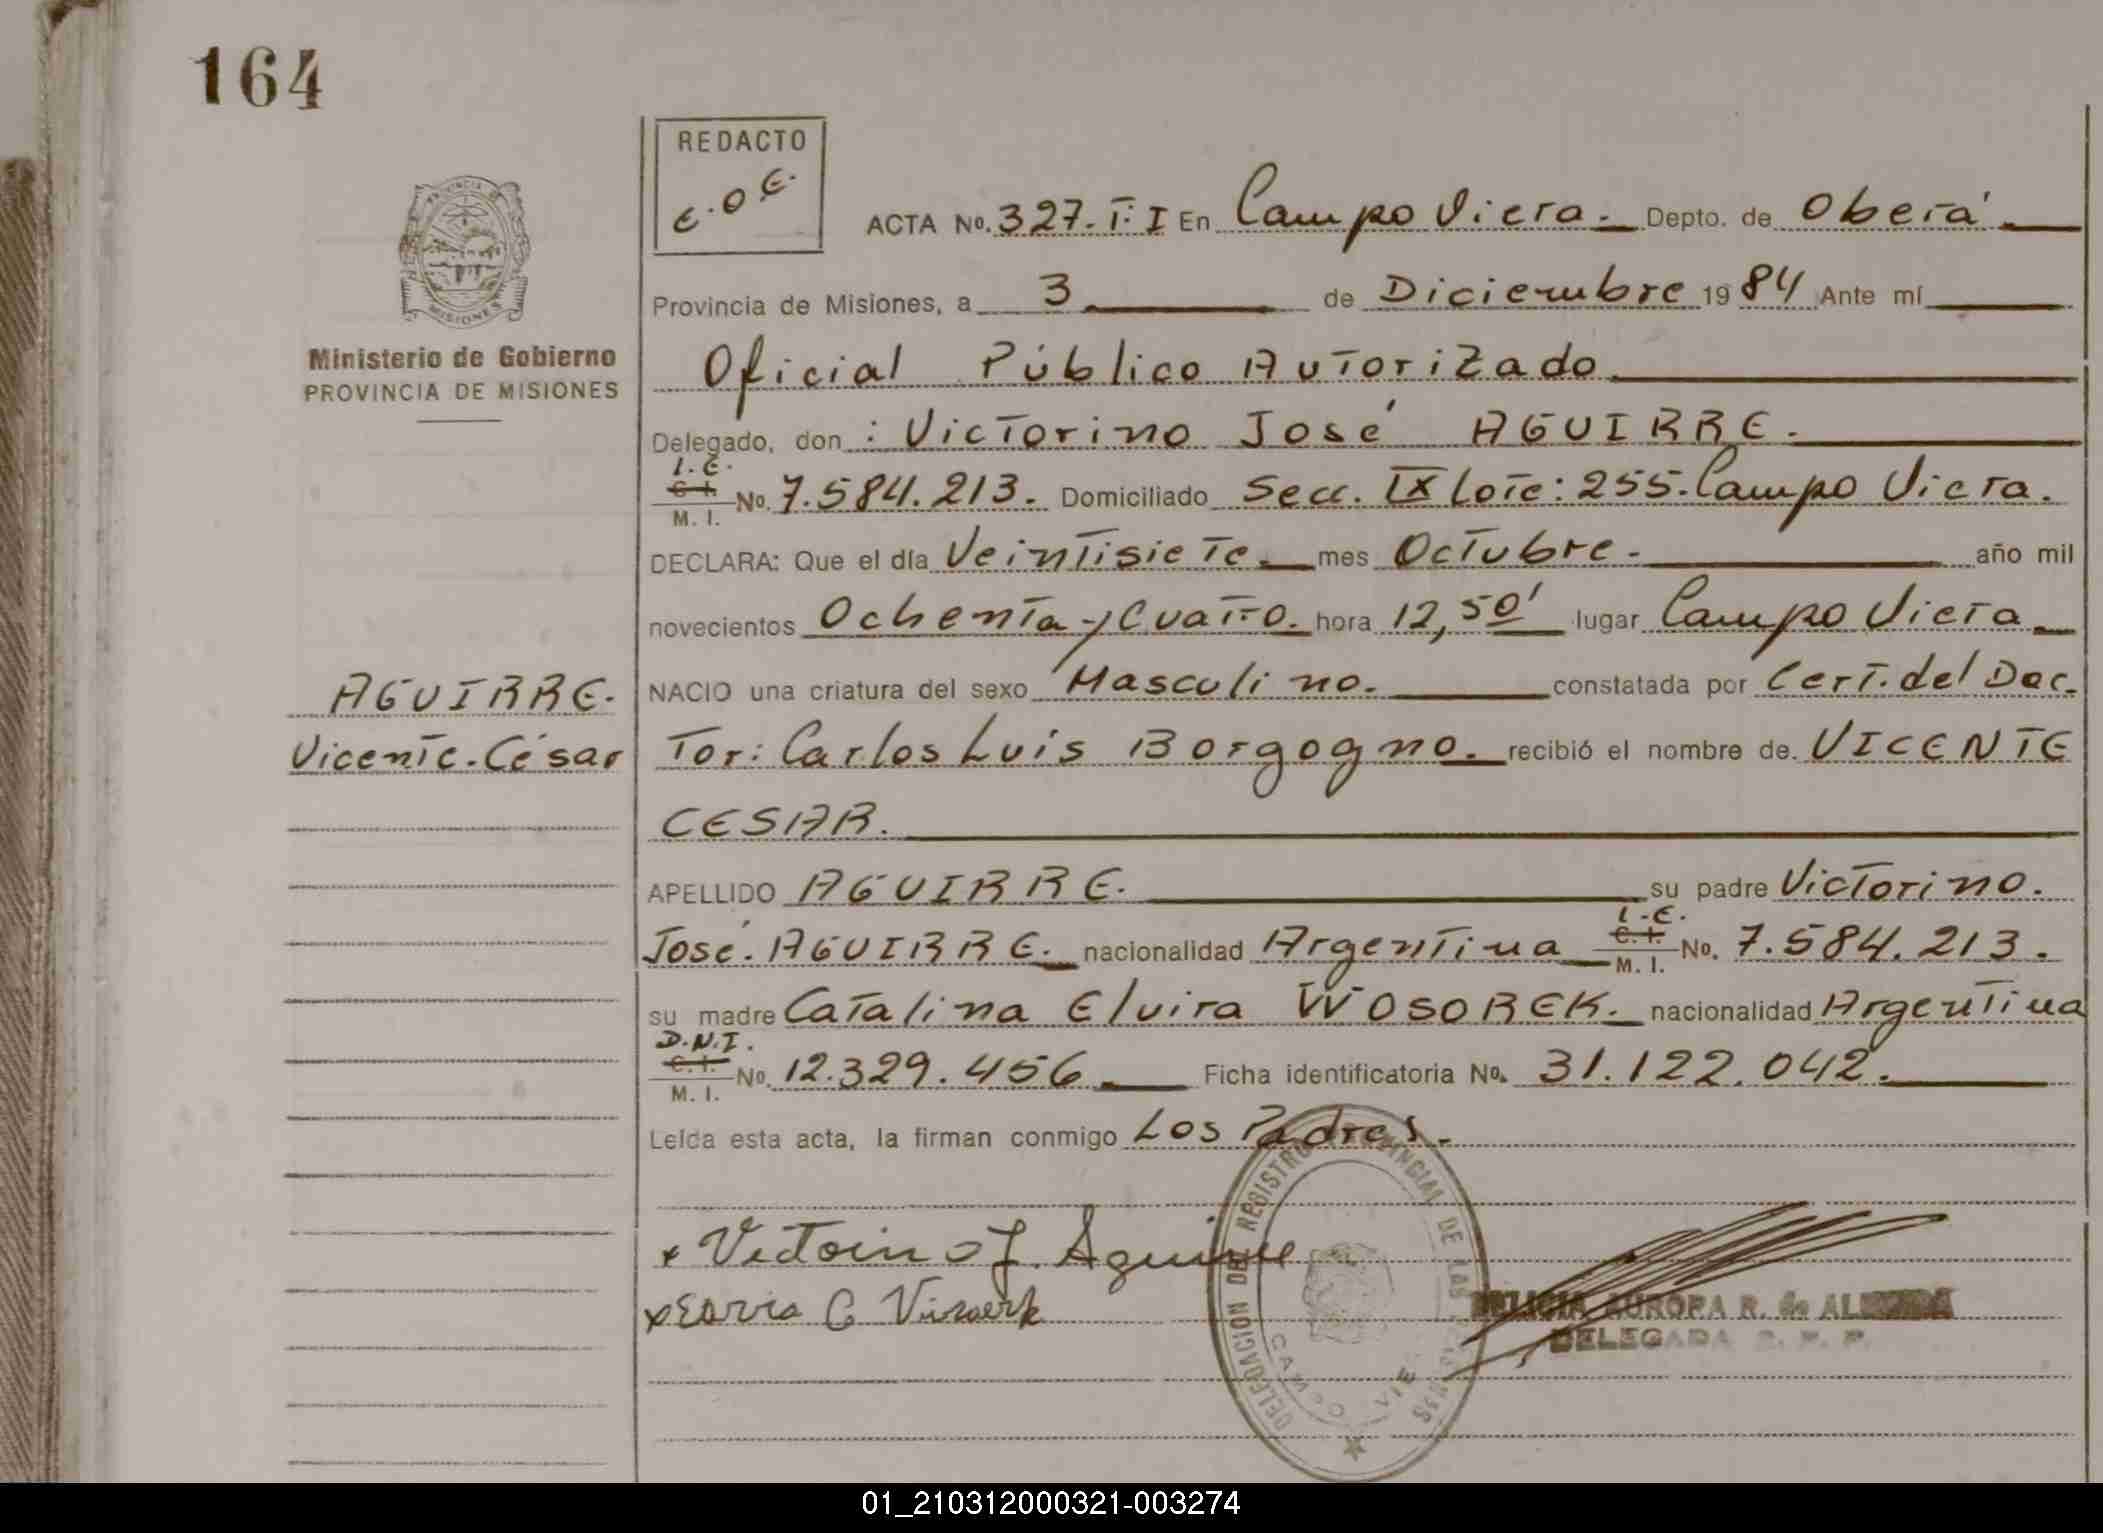 164
REDACTO
E.O.E.
ACTA No. 327.T:I En Campo Viera. Depto. de Oberá
Provincia de Misiones, a 3 de Diciembre 1984 Ante mí
Oficial Público Autorizado
Delegado, don: Victorino José AGUIRRE.
L.E.
C. I. No. 7.584.213. Domiciliado Secc. IX Lote: 255. Campo Viera.
M. I.
DECLARA: Que el día Veintisiete mes Octubre. año mil
novecientos Ochenta y Cuatro. hora 12,50' lugar Campo Viera
NACIO una criatura del sexo Masculino. constatada por Cert. del Doc.
Tor: Carlos Luis Borgogno. recibió el nombre de. VICENTE
CESAR.
APELLIDO AGUIRRE. su padre Victorino.
L.E.
José. AGUIRRE. nacionalidad Argentina C. I. No. 7.584.213.
M. I.
su madre Catalina Elvira WOSOREK. nacionalidad Argentina
D.N.I.
C. I. No. 12.329.456 Ficha identificatoria No. 31.122.042.
M. I.
Leída esta acta, la firman conmigo Los Padres.
x Victorino J. Aguirre
DELICIA AURORA R. de ALMEIDA
DELEGADA R. P. P.
DELEGACION DEL REGISTRO PROVINCIAL DE LAS PERSONAS
CAMPO VIE
PROVINCIA DE
MISIONES
Ministerio de Gobierno
PROVINCIA DE MISIONES
AGUIRRE.
Vicente. César
01_210312000321-003274